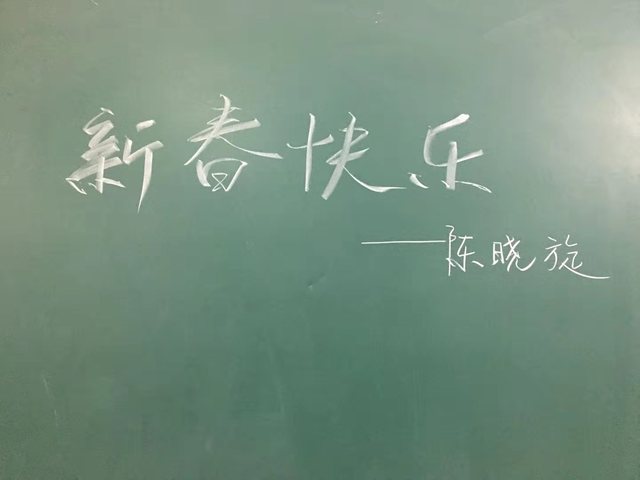 新春快乐
——陈晓旋